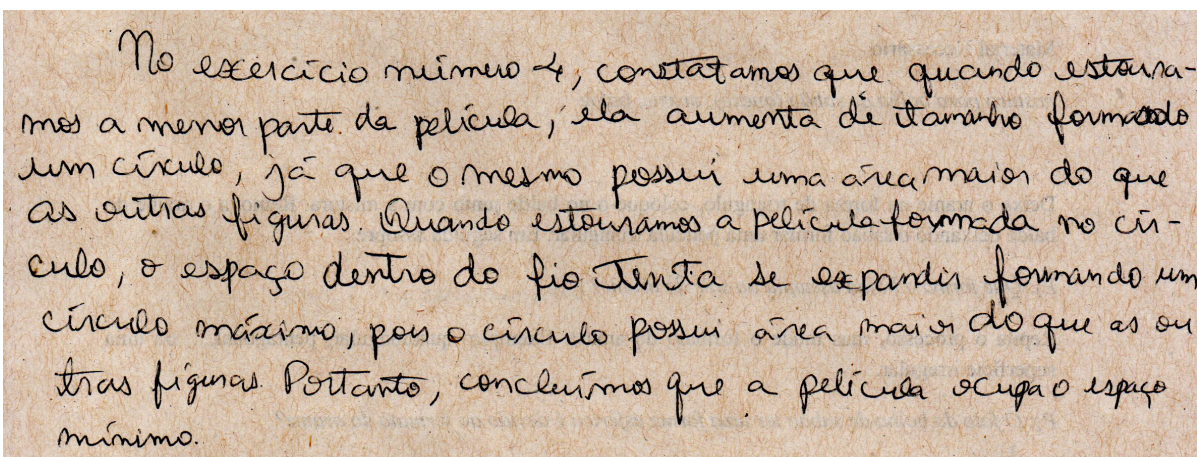 No exercício número 4, constatamos que quando estoura-
mos a menor parte da película, ela aumenta de tamanho formando
um círculo, já que o mesmo possui uma área maior do que
as outras figuras. Quando estouramos a película formada no cír-
culo, o espaço dentro do fio tenta se expandir formando um
círculo máximo, pois o círculo possui área maior do que as ou
tras figuras. Portanto, concluímos que a película ocupa o espaço
mínimo.